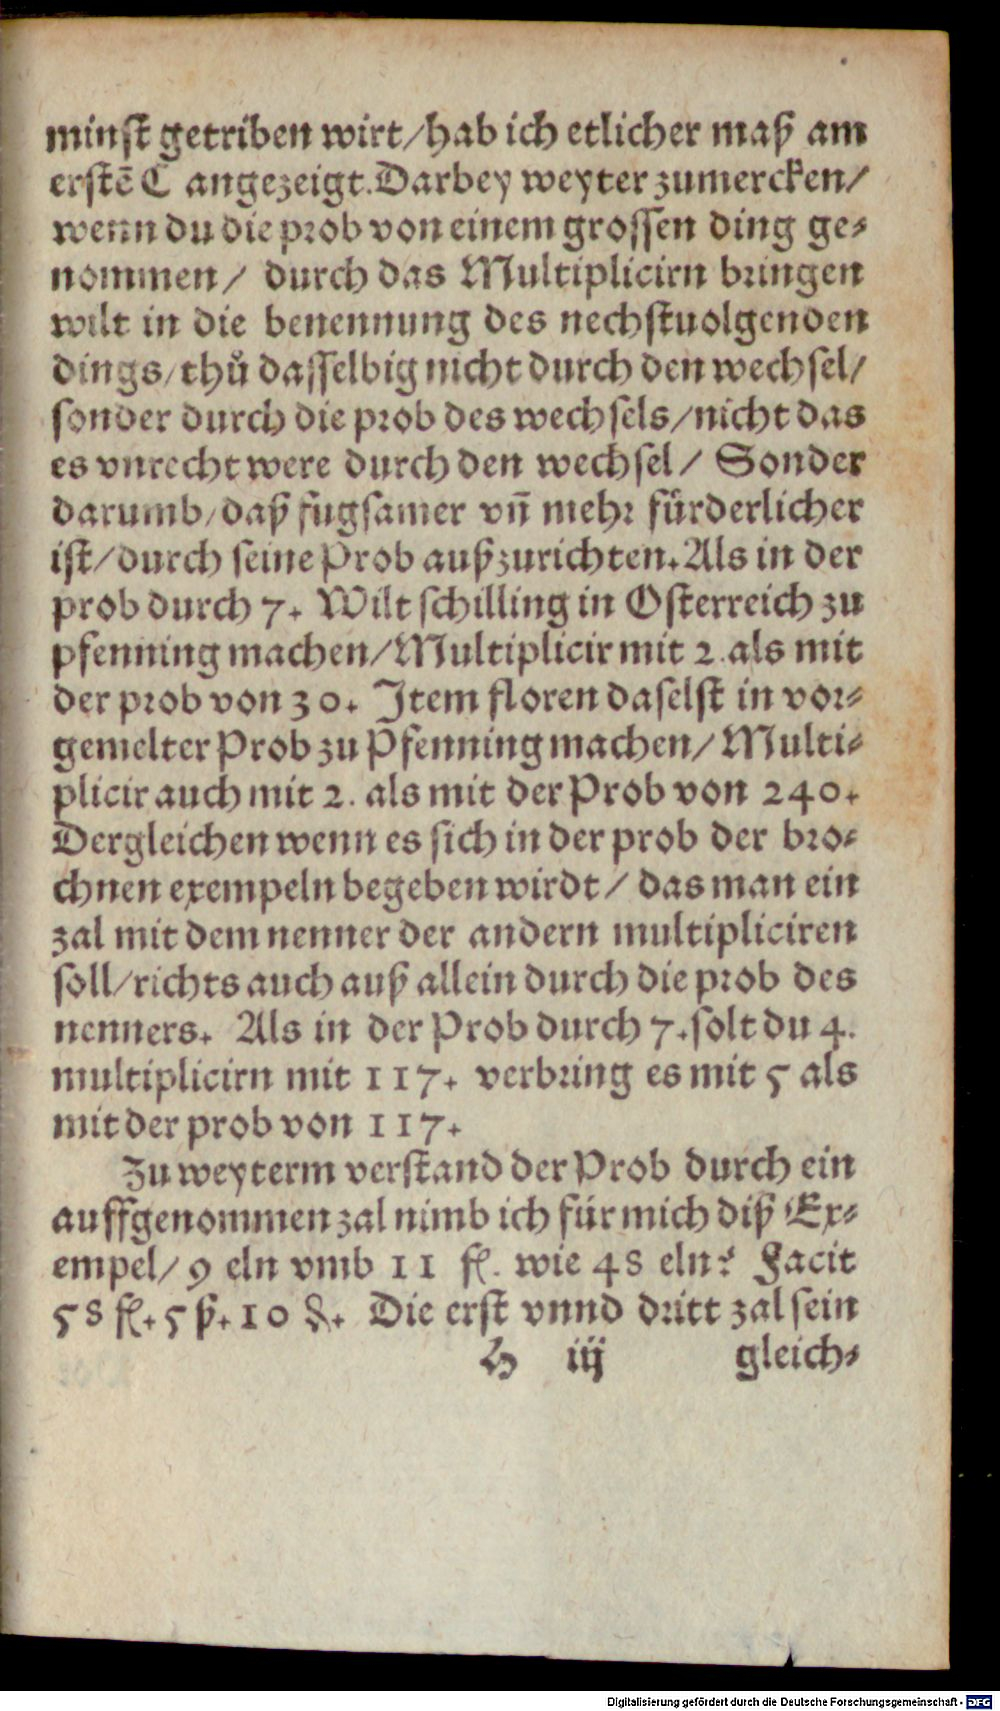 minst getriben wirt/hab ich etlicher maß am
erstē C angezeigt. Darbey weyter zumercken/
wenn du die prob von einem grossen ding ge-
nommen/ durch das Multiplicirn bringen
wilt in die benennung des nechstuolgenden
dings/thů dasselbig nicht durch den wechsel/
sonder durch die prob des wechsels/nicht das
es vnrecht were durch den wechsel/ Sonder
darumb/daß fůgsamer vñ mehr fürderlicher
ist/durch seine Prob außzurichten. Als in der
prob durch 7. Wilt schilling in Osterreich zu
pfenning machen/Multiplicir mit 2. als mit
der prob von 30. Item floren daselst in vor-
gemelter Prob zu Pfenning machen/Multi-
plicir auch mit 2. als mit der Prob von 240.
Dergleichen wenn es sich in der prob der bro-
chnen exempeln begeben wirdt/ das man ein
zal mit dem nenner der andern multipliciren
soll/richts auch auß allein durch die prob des
nenners. Als in der Prob durch 7. solt du 4.
multiplicirn mit 117. verbring es mit 5 als
mit der prob von 117.
Zu weyterm verstand der Prob durch ein
auffgenommen zal nimb ich für mich diß Ex-
empel/ 9 eln vmb 11 fl. wie 48 eln? Facit
58 fl. 5 ß. 10 ₰. Die erst vnnd dritt zal sein
H iij gleich-
Digitalisierung gefördert durch die Deutsche Forschungsgemeinschaft - DFG